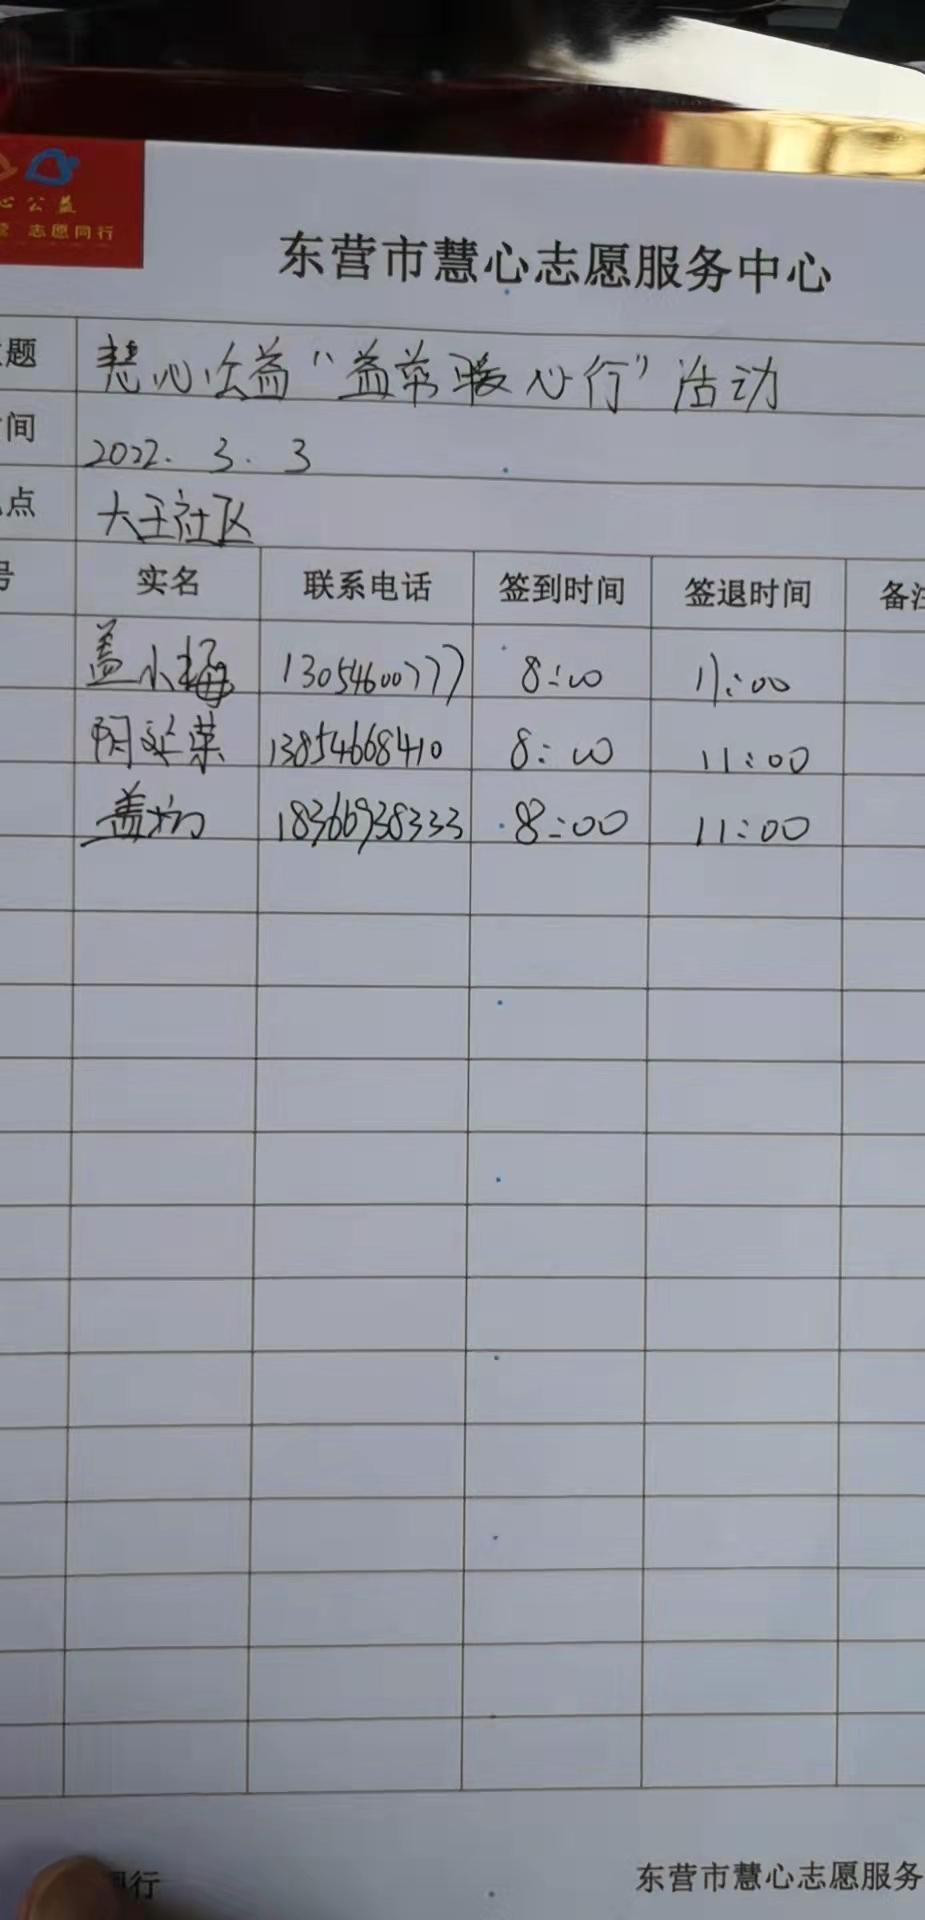 心公益
志愿同行
东营市慧心志愿服务中心
题 慧心公益“益剪暖心行”活动
间 2022.3.3
点 大王社区
号 实名 联系电话 签到时间 签退时间 备注
盖小梅 13054600777 8:00 11:00
13854668410 8:00 11:00
盖 18366938333 8:00 11:00
同行 东营市慧心志愿服务